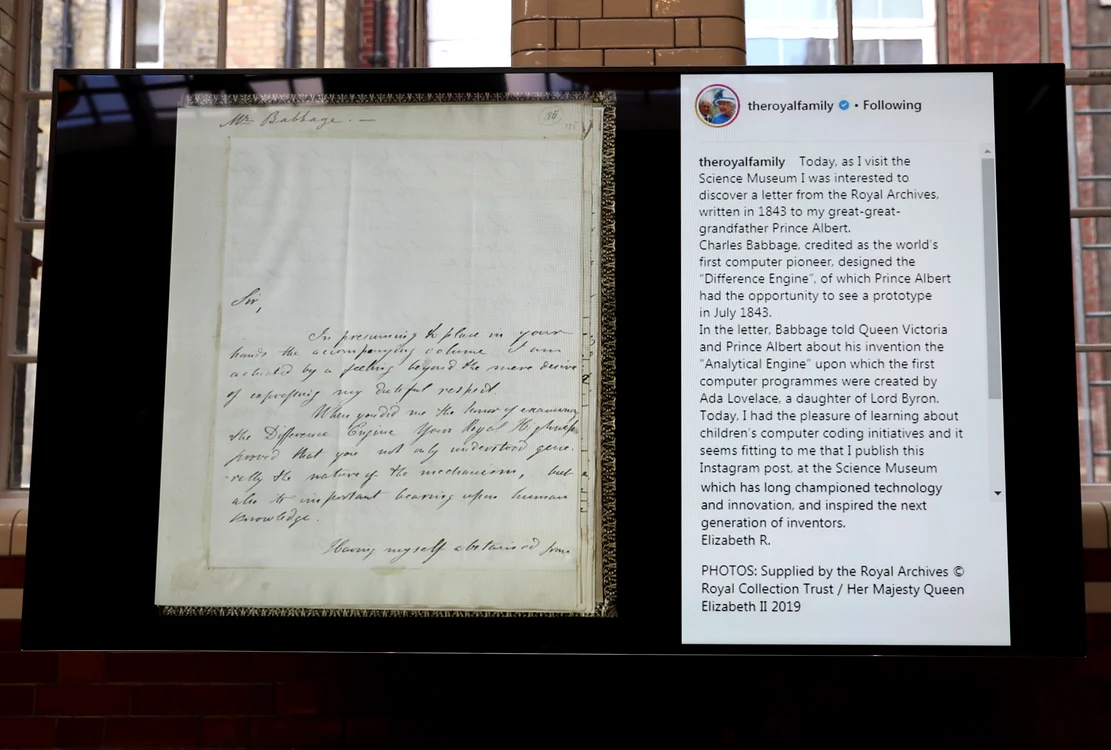 Mr Babbage. —
186
Sir,
In presuming to place in your
hands the accompanying volume I am
actuated by a feeling beyond the mere desire
of expressing my dutiful respect.
When you did me the honor of examining
the Difference Engine Your Royal Highness
proved that you not only understood gene-
-rally the nature of the mechanism, but
also its important bearing upon human
knowledge.
Having myself abstained from
theroyalfamily • Following
theroyalfamily Today, as I visit the
Science Museum I was interested to
discover a letter from the Royal Archives,
written in 1843 to my great-great-
grandfather Prince Albert.
Charles Babbage, credited as the world's
first computer pioneer, designed the
"Difference Engine", of which Prince Albert
had the opportunity to see a prototype
in July 1843.
In the letter, Babbage told Queen Victoria
and Prince Albert about his invention the
"Analytical Engine" upon which the first
computer programmes were created by
Ada Lovelace, a daughter of Lord Byron.
Today, I had the pleasure of learning about
children's computer coding initiatives and it
seems fitting to me that I publish this
Instagram post, at the Science Museum
which has long championed technology
and innovation, and inspired the next
generation of inventors.
Elizabeth R.
PHOTOS: Supplied by the Royal Archives ©
Royal Collection Trust / Her Majesty Queen
Elizabeth II 2019